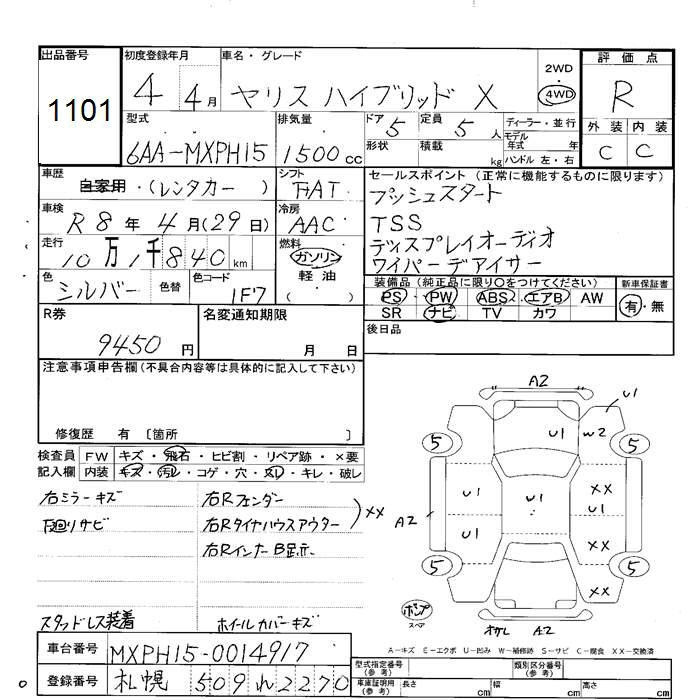 出品番号
1101
初度登録年月
4 4月
車名・グレード
ヤリス ハイブリッド X
2WD
・
4WD
評価点
R
外装 内装
C C
型式
6AA-MXPH15
排気量
1500cc
ドア
5
定員
5人
形状
積載
kg
ディーラー・並行
モデル年式 年
ハンドル 左・右
車歴
自家用・(レンタカー)
シフト
FAT
車検
R8年4月(29日)
冷房
AAC
走行
10万1千840km
燃料
ガソリン
軽油
( )
色
シルバー
色替
色コード
1F7
セールスポイント(正常に機能するものに限ります)
プッシュスタート
TSS
ディスプレイオーディオ
ワイパーデアイサー
装備品(純正品に限り○をつけてください)
PS・PW ABS エアB AW
SR ナビ TV カワ
新車保証書
有・無
後日品
R券
9450円
名変通知期限
月 日
注意事項申告欄(不具合内容等は具体的に記入して下さい)
修復歴 有 〔箇所 〕
検査員記入欄
FW キズ・飛石・ヒビ割・リペア跡・×要
内装 キズ・汚レ・コゲ・穴・スレ・キレ・破レ
右ミラーキズ
下廻りサビ
スタッドレス装着
右Rフェンダー
右Rタイヤハウスアウター
右RインナーB足示
) XX
ホイールカバーキズ
A2
U1
U1 W2
5 5
U1 U1 XX
U1
A2
U1 XX
5 5
XX
ポンプ
スペア
オサレ A2
A-キズ E-エクボ U-凹み W-補修跡 S-サビ C-腐食 XX-交換済
車台番号
MXPH15-0014917
登録番号
札幌 509 れ 2270
型式指定番号
(参考)
類別区分番号
(参考)
車庫証明用
(参考)
長さ cm
幅 cm
高さ cm